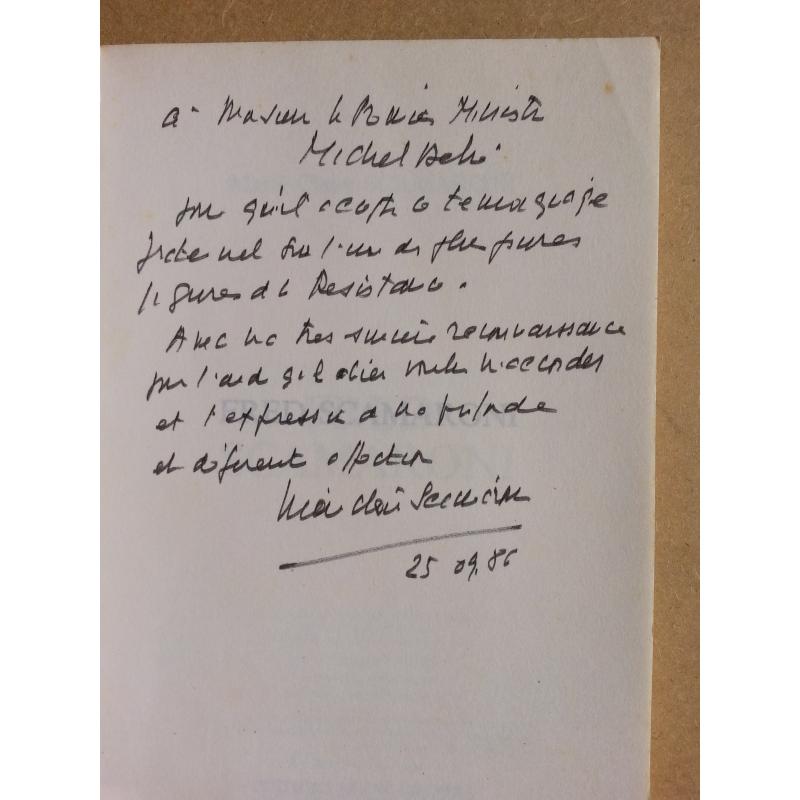 à Monsieur le Premier Ministre
Michel Debré
pour qu'il accepte ce témoignage
fraternel sur l'une des plus pures
figures de la Résistance.
Avec ma très sincère reconnaissance
pour l'aide qu'il a bien voulu m'accorder
et l'expression de ma profonde
et déférente affection
Marie Claire Scamaroni
25 09.86
FRED SCAMARONI